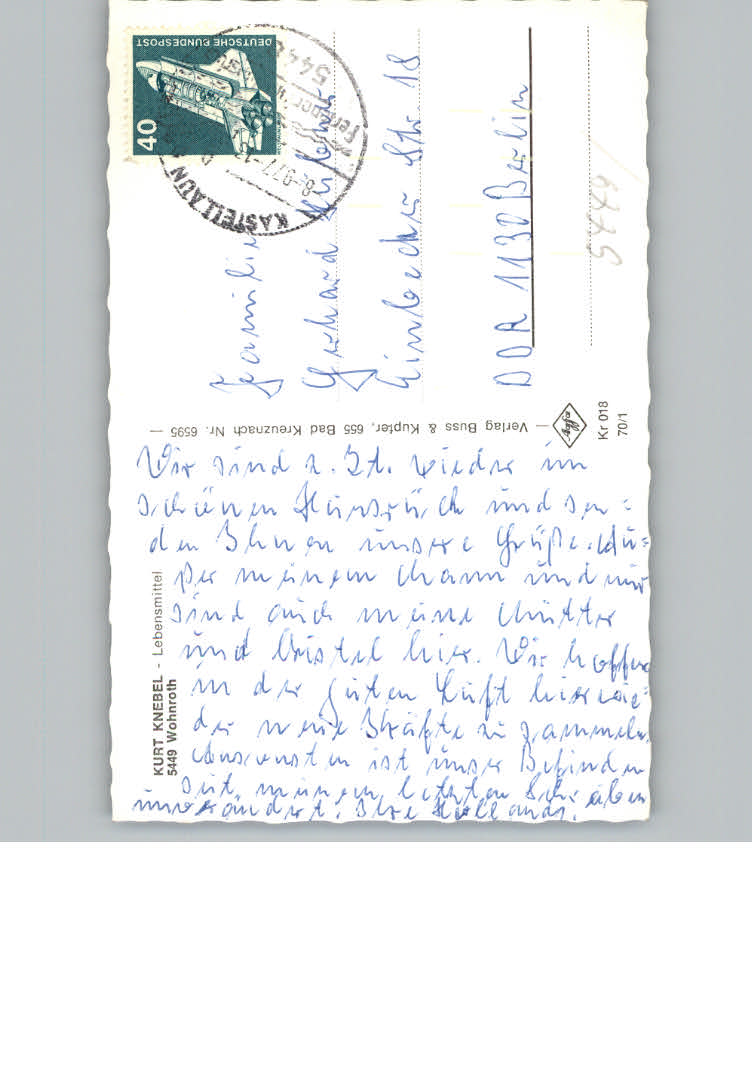 DEUTSCHE BUNDESPOST
40
KASTELLAUN
544
-8.-9.77-13
Familie
Gerhard
Einbecker Str 18
DDR 1130 Berlin
5449/
— Verlag Buss & Kupfer, 655 Bad Kreuznach Nr. 6595 —
Agfa
Kr 018
70/1
KURT KNEBEL - Lebensmittel
5449 Wohnroth
Wir sind z. Zt. wieder im
schönen Hunsrück und sen=
den Ihnen unsere Grüße. Au=
ßer meinem Mann und mir
sind auch meine Mutter
und Christel hier. Wir hoffen
in der guten Luft hier wie=
der neue Kräfte zu sammeln.
Ansonsten ist unser Befinden
seit meinem letzten Schreiben
unverändert. Ihre Hollands.